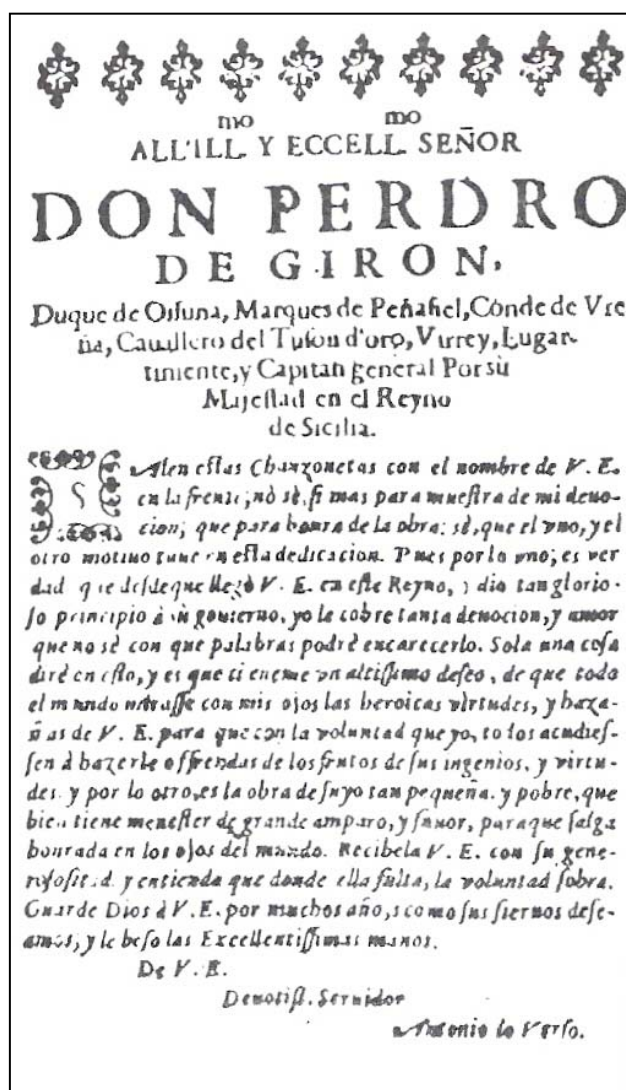 mo mo
ALL'ILL. Y ECCELL. SEÑOR
DON PERDRO
DE GIRON,
Duque de Ossuna, Marques de Peñafiel, Conde de Vre
ña, Cauallero del Tuson d'oro, Virrey, Lugar-
tiniente, y Capitan general Por sù
Majestad en el Reyno
de Sicilia.
SAlen estas Chanzonetas con el nombre de V. E.
en la frente; nò sè, si mas para muestra de mi deuo-
cion; que para honra de la obra: sè, que el vno, y el
otro motiuo tuue en esta dedicacion. Pues por lo vno; es ver
dad que desde que llegò V. E. en este Reyno, y dio tan glorio-
so principio à su gouierno, yo le cobre tanta deuocion, y amor
que no sè con que palabras podrè encarecerlo. Sola una cosa
dirè en esto, y es que tieneme vn altissimo deseo, de que todo
el mundo mirasse con mis ojos las heroicas virtudes, y haza-
ñas de V. E. para que con la voluntad que yo, todos acudies-
sen à hazerle offrendas de los frutos de sus ingenios, y virtu-
des. y por lo otro, es la obra de suyo tan pequeña. y pobre, que
bien tiene menester de grande amparo, y fauor, para que salga
honrada en los ojos del mundo. Recibela V. E. con su gene-
rosositad. y entienda que donde ella falta, la voluntad sobra.
Guarde Dios à V. E. por muchos año, s como sus sieruos dese-
amos, y le beso las Excellentissimas manos.
De V. E.
Deuotiss. Seruidor
Antonio lo Verso.